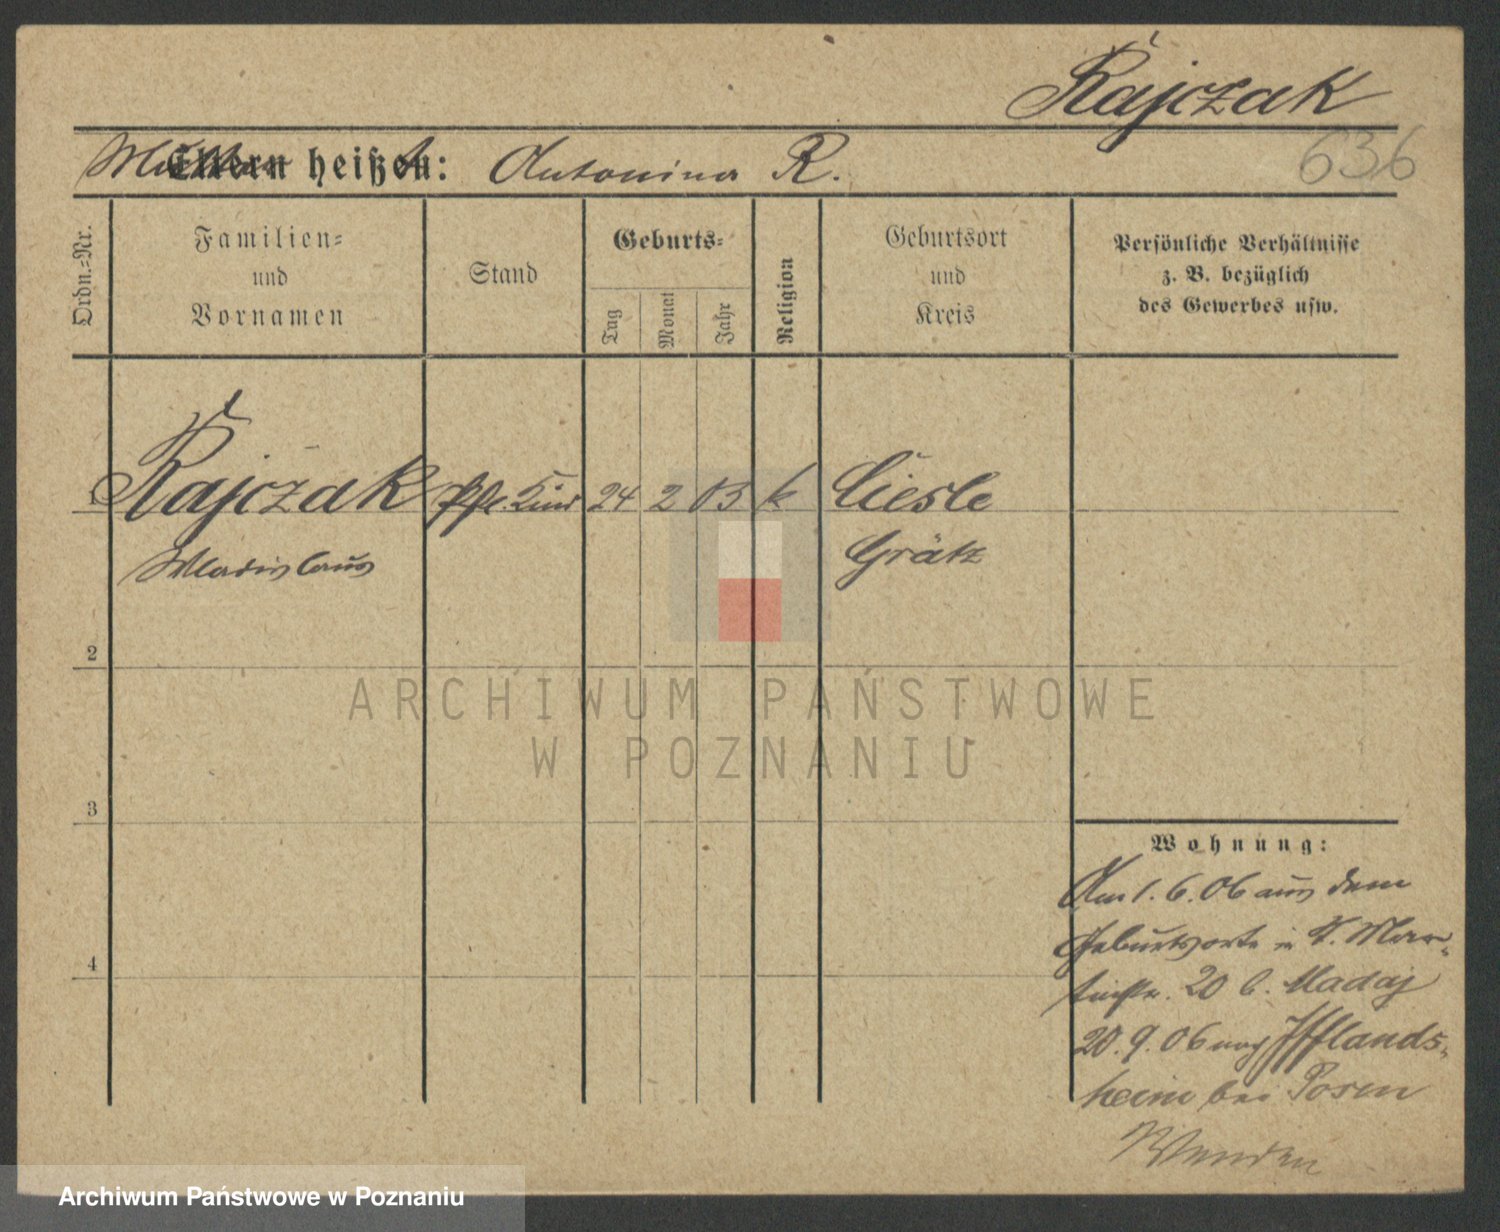 Rajczak
636
Mutter heißt: Antonina R.
Ordn.-Nr.
Familien-
und
Vornamen
Stand
Geburts-
Tag
Monat
Jahr
Religion
Geburtsort
und
Kreis
Persönliche Verhältnisse
z. B. bezüglich
des Gewerbes usw.
1 Rajczak Pfl. Kind 24 2 03 k Ciesle
Wladislaus Grätz
2
3
4
Wohnung:
Am 1. 6. 06 aus dem
Geburtsorte in St. Mar-
tinstr. 20 b. Madaj
20. 9. 06 nach Ifflands-
heim bei Posen
ARCHIWUM PAŃSTWOWE
W POZNANIU
Archiwum Państwowe w Poznaniu